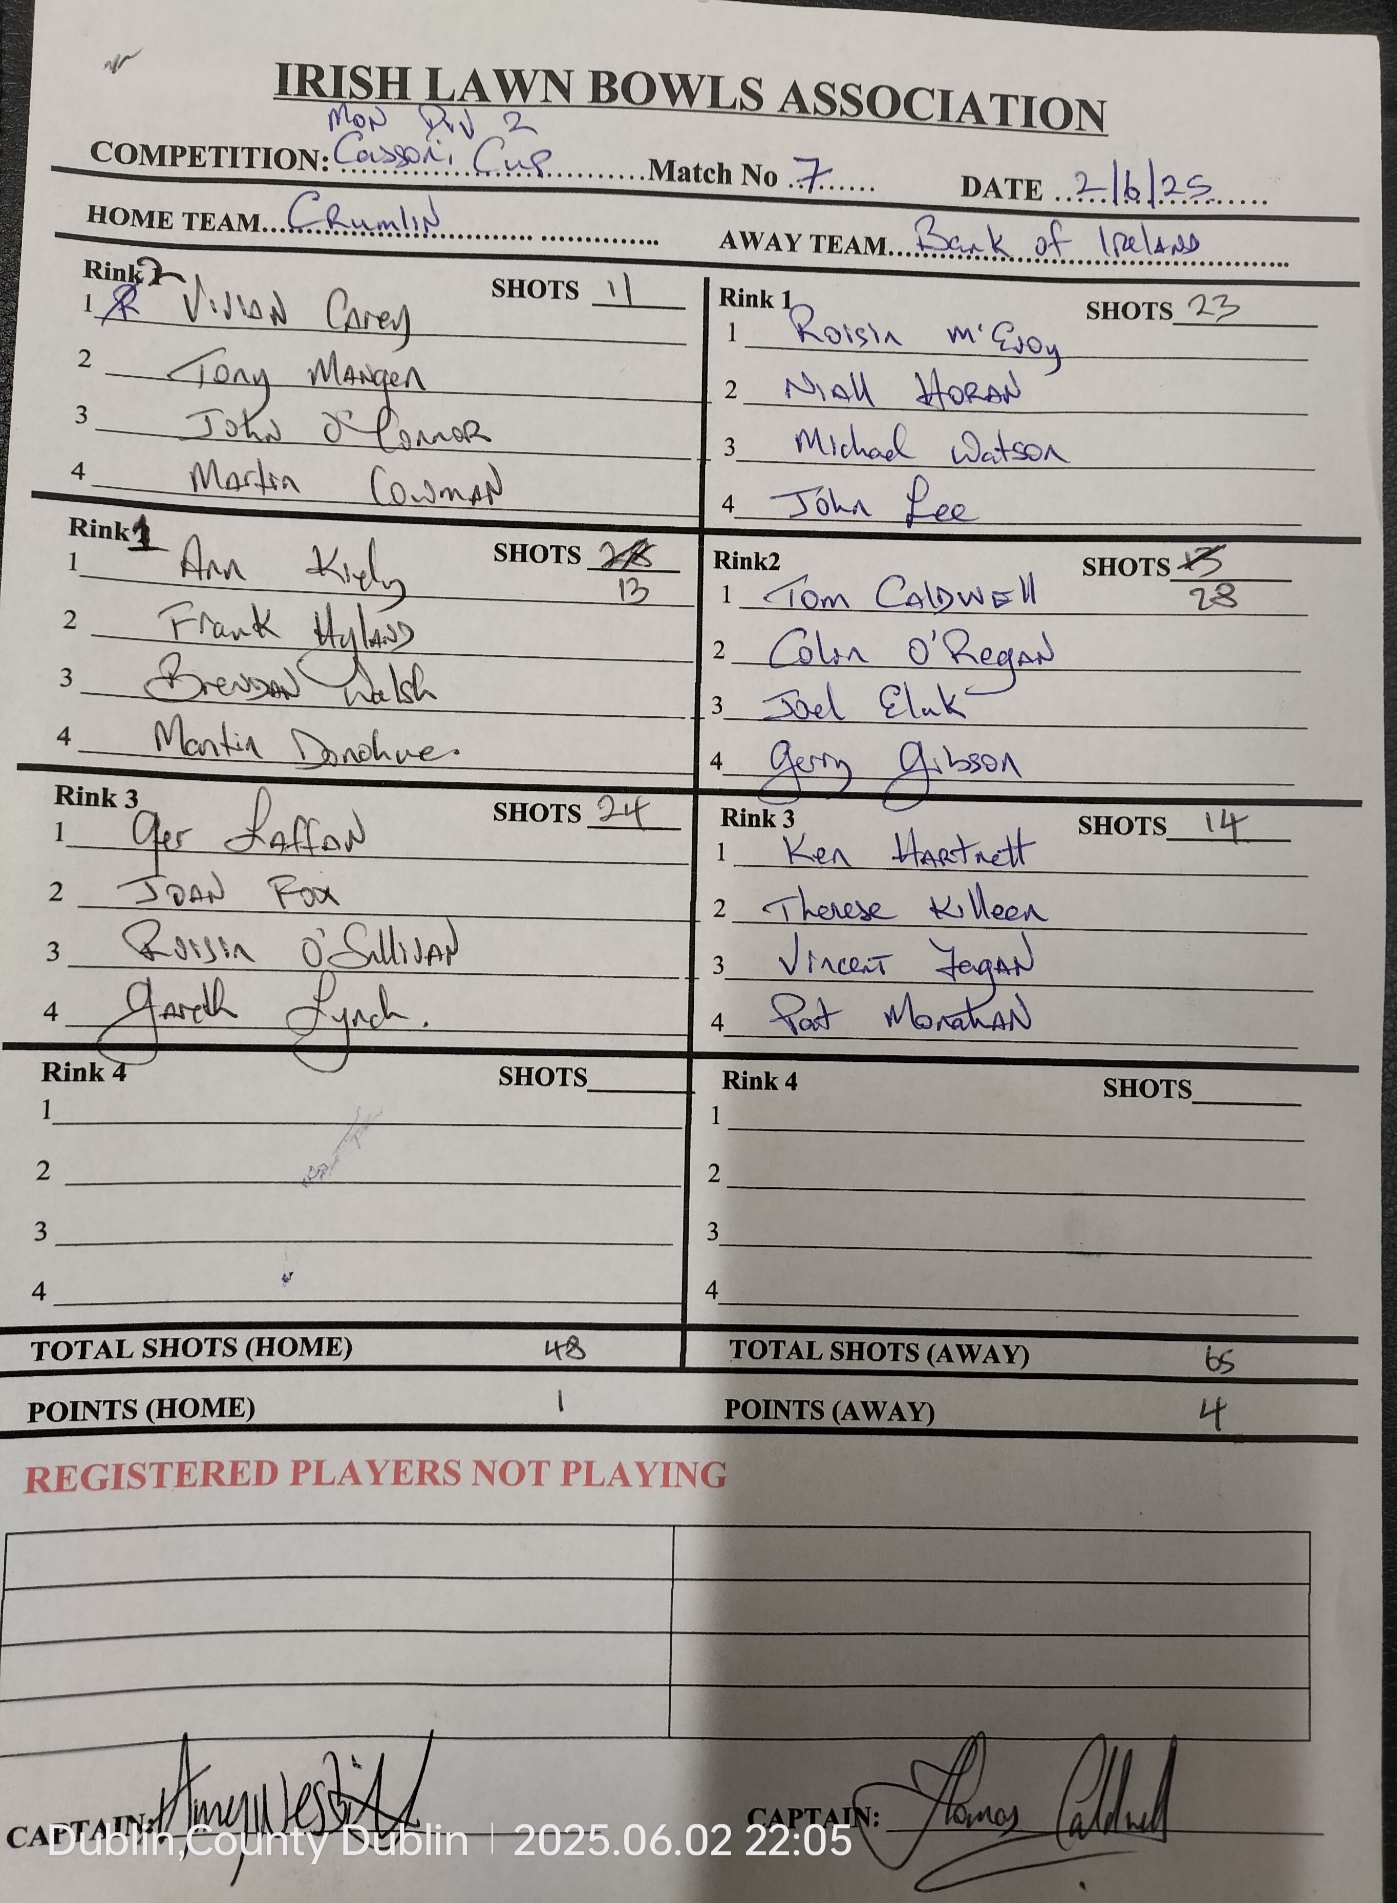 IRISH LAWN BOWLS ASSOCIATION
Mon Div 2
COMPETITION: Cassoni Cup Match No 7 DATE 2/6/25
HOME TEAM Crumlin AWAY TEAM Bank of Ireland
Rink 2 SHOTS 11
1 Vivian Carey
2 Tony Mangan
3 John O'Connor
4 Martin Cowman
Rink 1 SHOTS 23
1 Roisin McEvoy
2 Niall Horan
3 Michael Watson
4 John Lee
Rink 1 SHOTS 28
13
1 Ann Kiely
2 Frank Hyland
3 Brendan Walsh
4 Martin Donohue.
Rink2 SHOTS 13
28
1 Tom Caldwell
2 Colin O'Regan
3 Joel
4 Gerry Gibson
Rink 3 SHOTS 24
1 Ger Laffan
2 Joan Fox
3 Roisin O'Sullivan
4 Gareth Lynch.
Rink 3 SHOTS 14
1 Ken Hartnett
2 Therese Killeen
3 Vincent Fagan
4 Pat Monahan
Rink 4 SHOTS
1
2
3
4
Rink 4 SHOTS
1
2
3
4
TOTAL SHOTS (HOME) 48 TOTAL SHOTS (AWAY) 65
POINTS (HOME) 1 POINTS (AWAY) 4
REGISTERED PLAYERS NOT PLAYING
CAPTAIN: CAPTAIN: Thomas Caldwell
Dublin,County Dublin | 2025.06.02 22:05